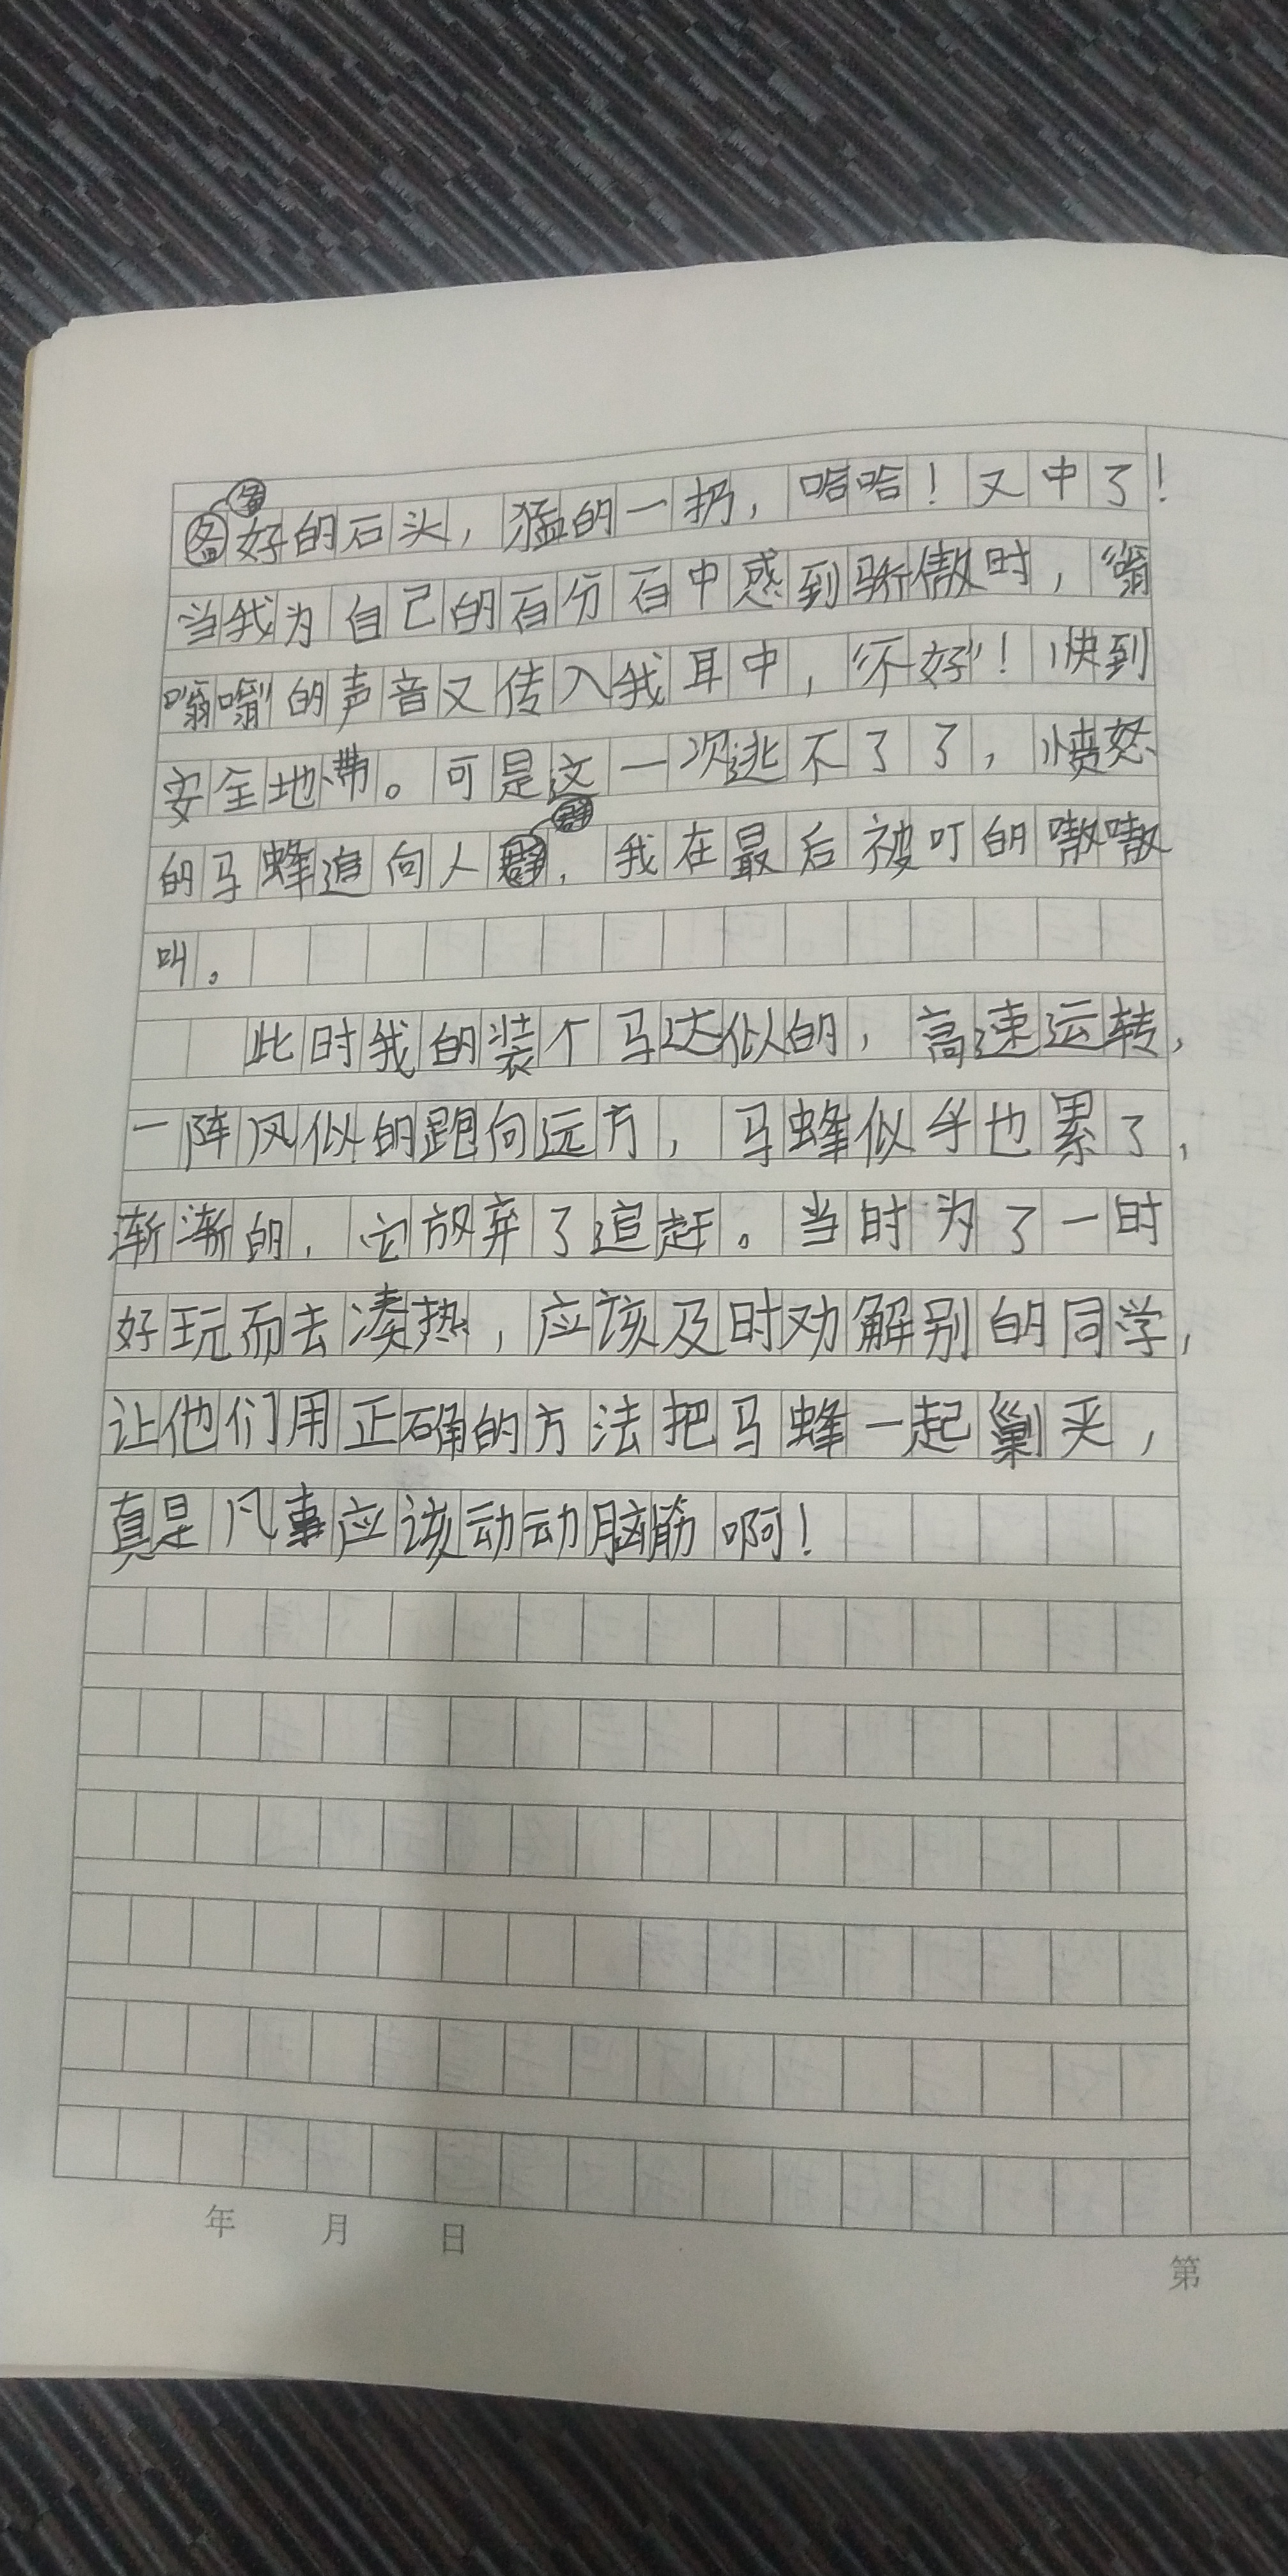 备
备好的石头，猛的一扔，哈哈！又中了！
当我为自己的百分百中感到骄傲时，“嗡
嗡嗡”的声音又传入我耳中，“不好”！快到
安全地带。可是这一次逃不了了，愤怒
群
的马蜂追向人群，我在最后被叮的嗷嗷
叫。
此时我的装个马达似的，高速运转，
一阵风似的跑向远方，马蜂似乎也累了，
渐渐的，它放弃了追赶。当时为了一时
好玩而去凑热，应该及时劝解别的同学，
让他们用正确的方法把马蜂一起剿灭，
真是凡事应该动动脑筋啊！
年 月 日
第